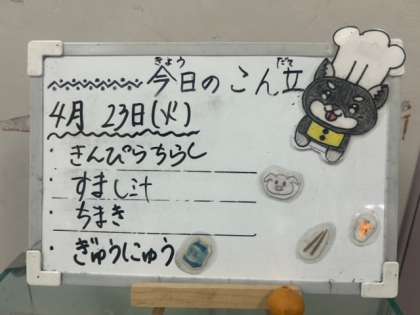 今日のこん立
きょう だて
4月 23日(火)
・きんぴらちらし
・すまし汁
・ちまき
・ぎゅうにゅう